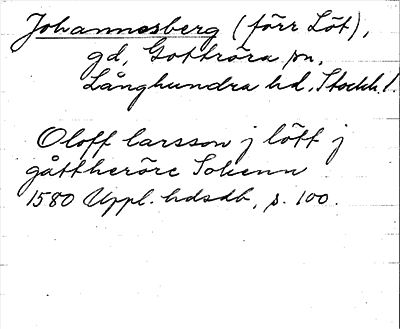 Johannesberg (förr Löt),
gd, Gottröra sn,
Långhundra hd, Stockh. l.
Oloff larsson j lött j
gåttheröre Sokenn
1580 Uppl. hdsdb, s. 100.